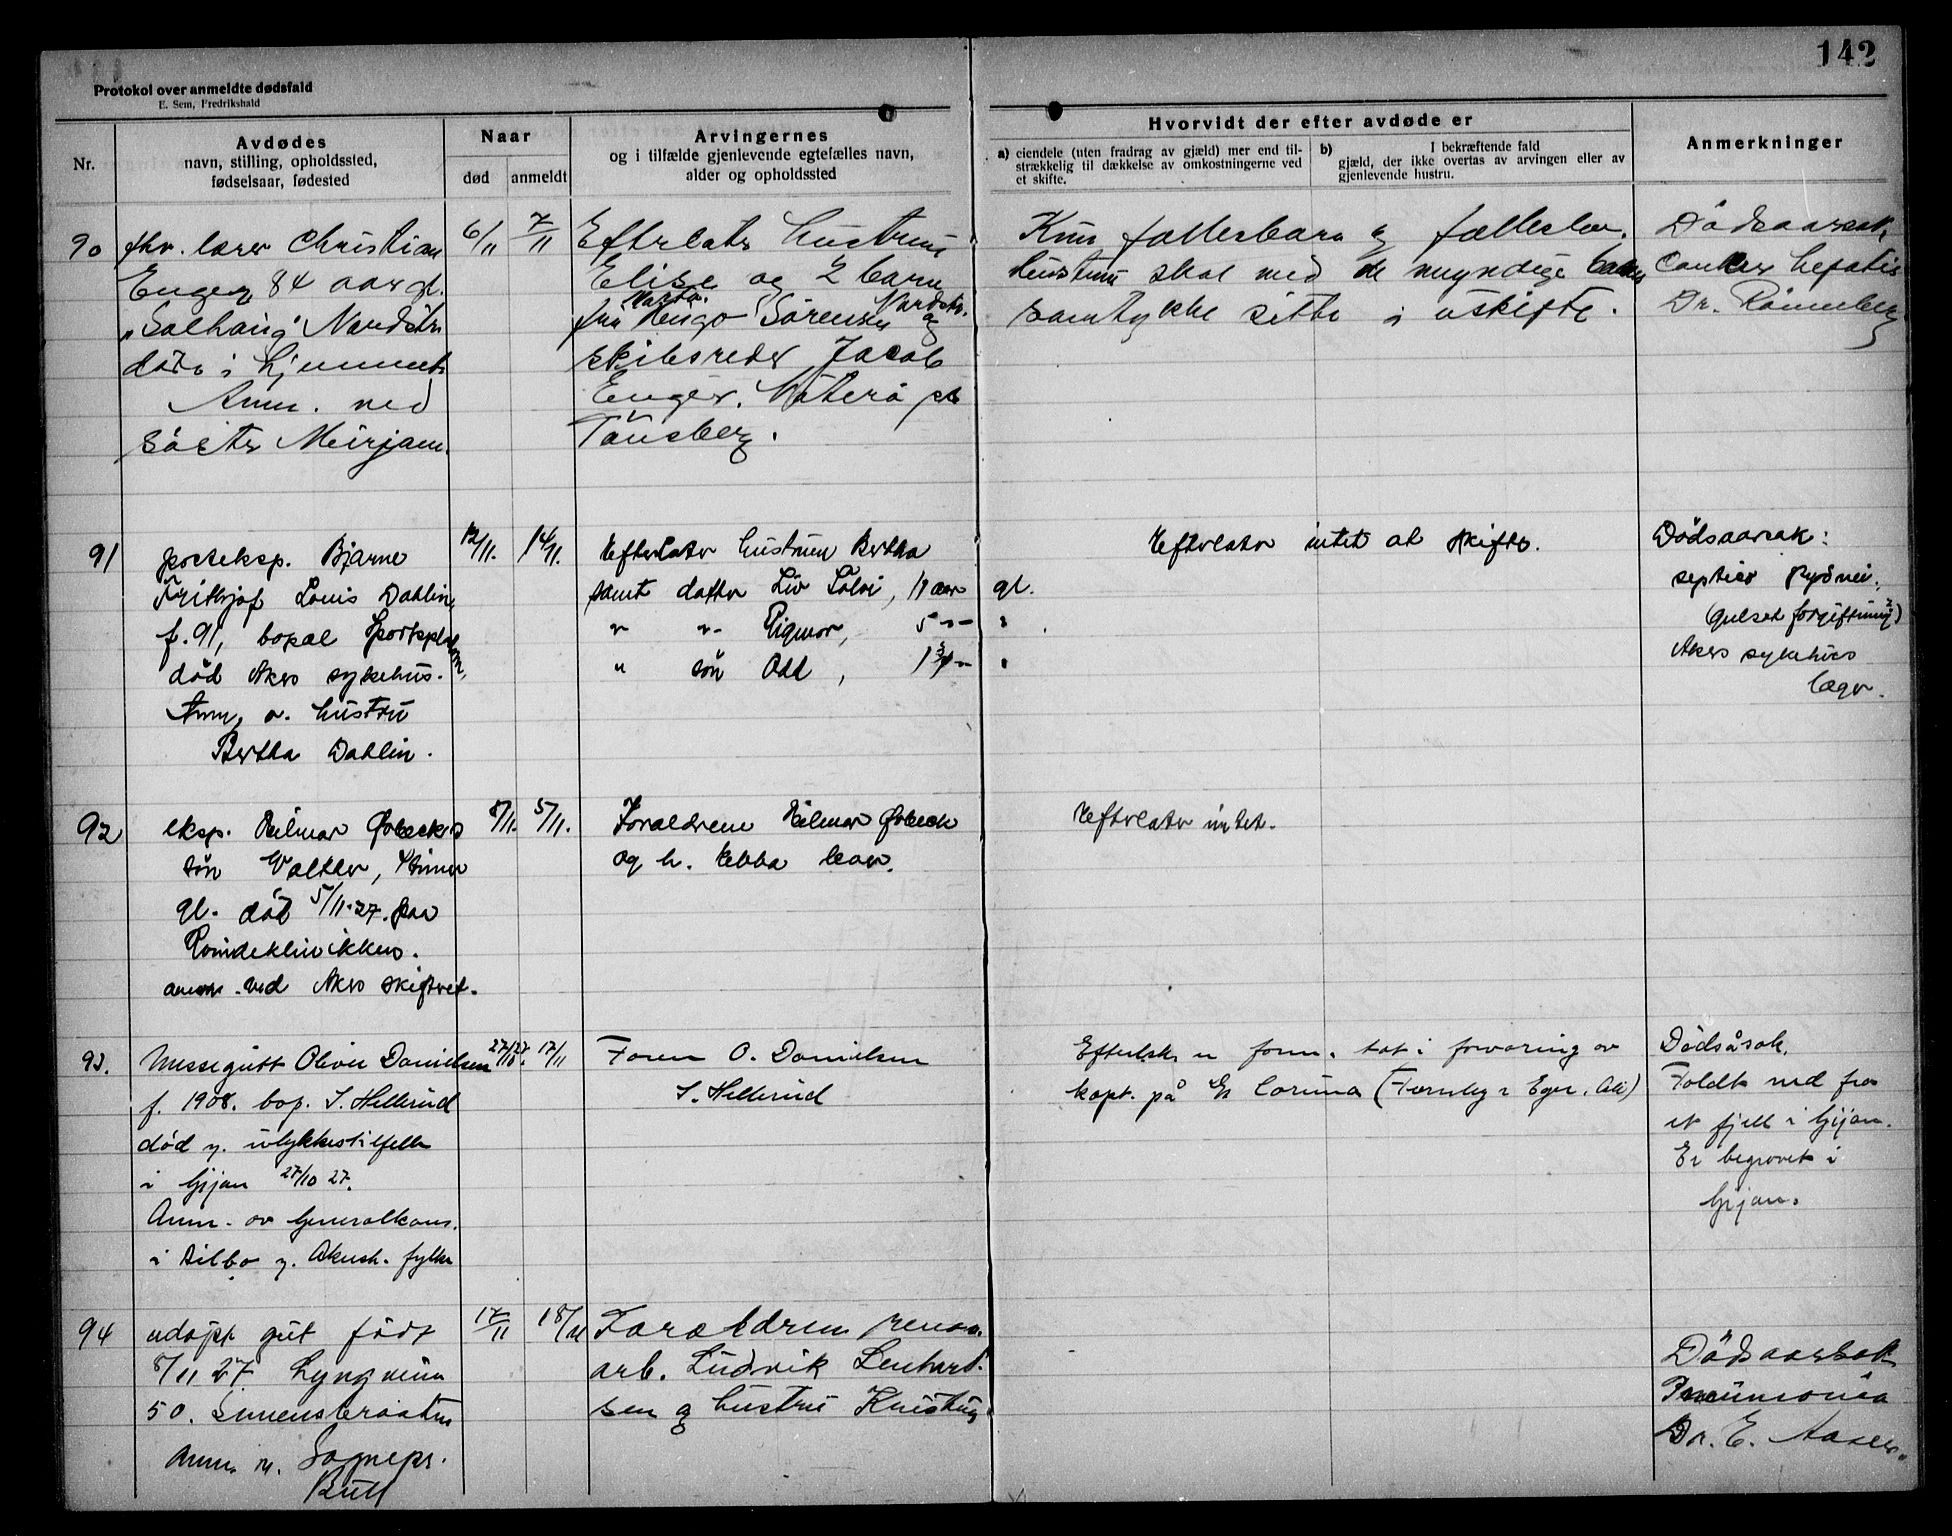 142
Protokol over anmeldte dødsfald
E. Sem, Fredrikshald
Nr.
Avdødes
navn, stilling, opholdssted,
fødselsaar, fødested
Naar
død
anmeldt
Arvingernes
og i tilfælde gjenlevende egtefælles navn,
alder og opholdssted
Hvorvidt der efter avdøde er
a) eiendele (uten fradrag av gjæld) mer end til-
strækkelig til dækkelse av omkostningerne ved
et skifte.
b) I bekræftende fald
gjæld, der ikke overtas av arvingen eller av
gjenlevende hustru.
Anmerkninger
90
fhv. lærer Christian
Enger 84 aar gl.
"Solhaug" Nordstr.
døde i hjemmet
Anm. ved
søster Mirjam.
6/11
7/11
Efterlater hustru
Elise og 2 barn
fru Hugo Sørensen Nordstr. og
skibsreder Jacob
Enger, Nøterø pr
Tønsberg.
Kun fællesbarn og fælleseie.
hustru skal med de myndige barns
samtykke sitte i uskifte.
Dødsaarsak
Cancer hepatis
Dr. Rønneberg
91
posteksp. Bjarne
Fritjof Louis Dahlin,
f. 91, bopæl
død Akers sykehus.
Anm. a. hustru
Bertha Dahlin.
12/11.
14/11.
Efterlater hustru Bertha
samt datter Liv Solvi, 11 aar gl.
" " Rigmor, 5 " "
" søn Odd, 1 3/4 " "
Efterlater intet at skifte.
Dødsaarsak:
septico
forgiftning)
Akers sykehus
læge.
92
eksp. Hilmar
søn Walther,
gl. død 5/11.27. paa
anm. ved Akers skifteret.
8/11.
5/11.
Forældrene Hilmar
og h. Ebba lever.
Efterlater intet.
93.
Messegutt Oliver Danielsen
f. 1908. bop. S. Hellerud
død v. ulykkestilfelle
i Gijon 27/10 27.
Anm. av Generalkons.
i Bilbo v. Akersh. fylke
27/10 27.
17/11
Faren O. Danielsen
S. Hellerud
Efterl. er form. tat i forvaring av
kapt. på Es Coruna (Fearnley & Eger, Oslo)
Dødsårsak.
Faldt ned fra
et fjell i Gijon.
Er begravet i
Gijon.
94
udøpt gut født
8/11 27. Lyngveien
50. Simensbraaten
Anm. v. Sognepr.
Bull
17/11
18/11
Forældrene renov.
arb. Ludvik Lenhard-
sen og hustru
Dødsaarsak
Pneumonia
Dr. E. Aaser.